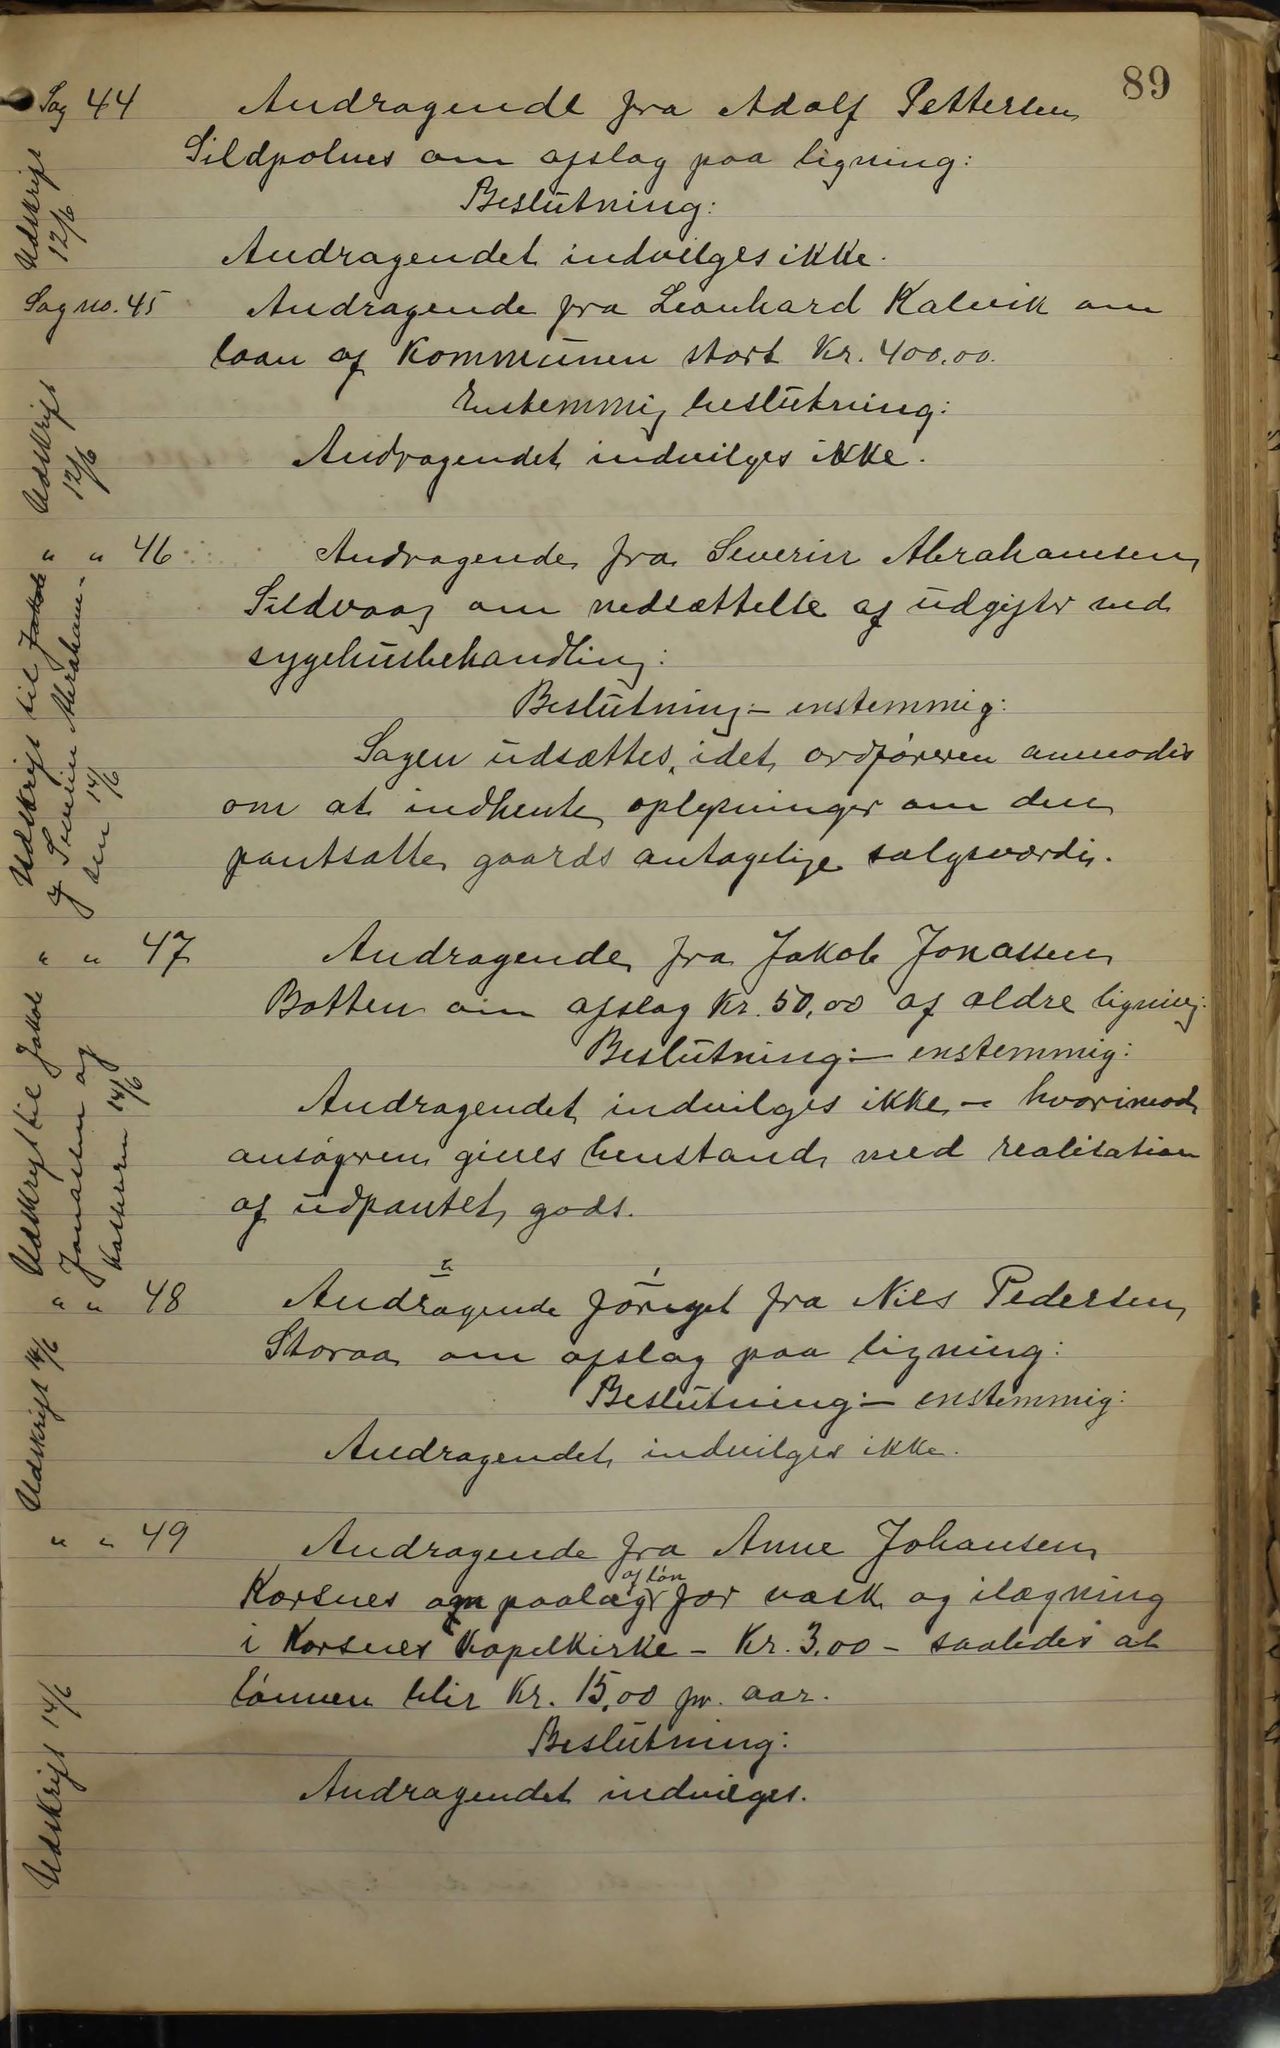 89
Sag 44 Andragende fra Adolf Pettersen
Sildpolnes om afslag paa ligning:
Udskrift
12/6
Beslutning:
Andragendet indvilges ikke.
Sag no. 45 Andragende fra Leonhard Kalvik om
laan af Kommunen stort Kr. 400,00.
Udskrift
12/6
Enstemmig beslutning:
Andragendet indvilges ikke.
" " 46 Andragende fra Severin Abrahamsen
Sildvaag om nedsættelse af udgifter ved
sygehusbehandling:
Udskrift til Jakob
og Severin Abraham-
sen 14/6
Beslutning - enstemmig:
Sagen udsættes, idet ordføreren anmodes
om at indhente oplysninger om den
pantsatte gaards antagelige salgsværdi.
" " 47 Andragende fra Jakob Jonassen
Botten om afslag Kr. 50,00 af ældre ligning:
Udskrift til Jakob
Jonassen og
Kasseren 14/6
Beslutning:- enstemmig:
Andragendet indvilges ikke - hvorimod
ansøgeren gives henstand med realisation
af udpantet gods.
" " 48 Andragende fornyet fra Nils Pedersen
Storaa om afslag paa ligning:
Udskrift 14/6
Beslutning:- enstemmig:
Andragendet indvilges ikke.
" " 49 Andragende fra Anne Johansen
af løn
Korsnes om paalæg for vask og ilægning
i Korsnes Kapelkirke - Kr. 3,00 - saaledes at
lønnen blir Kr. 15,00 pr. aar.
Udskrift 14/6
Beslutning:
Andragendet indvilges.